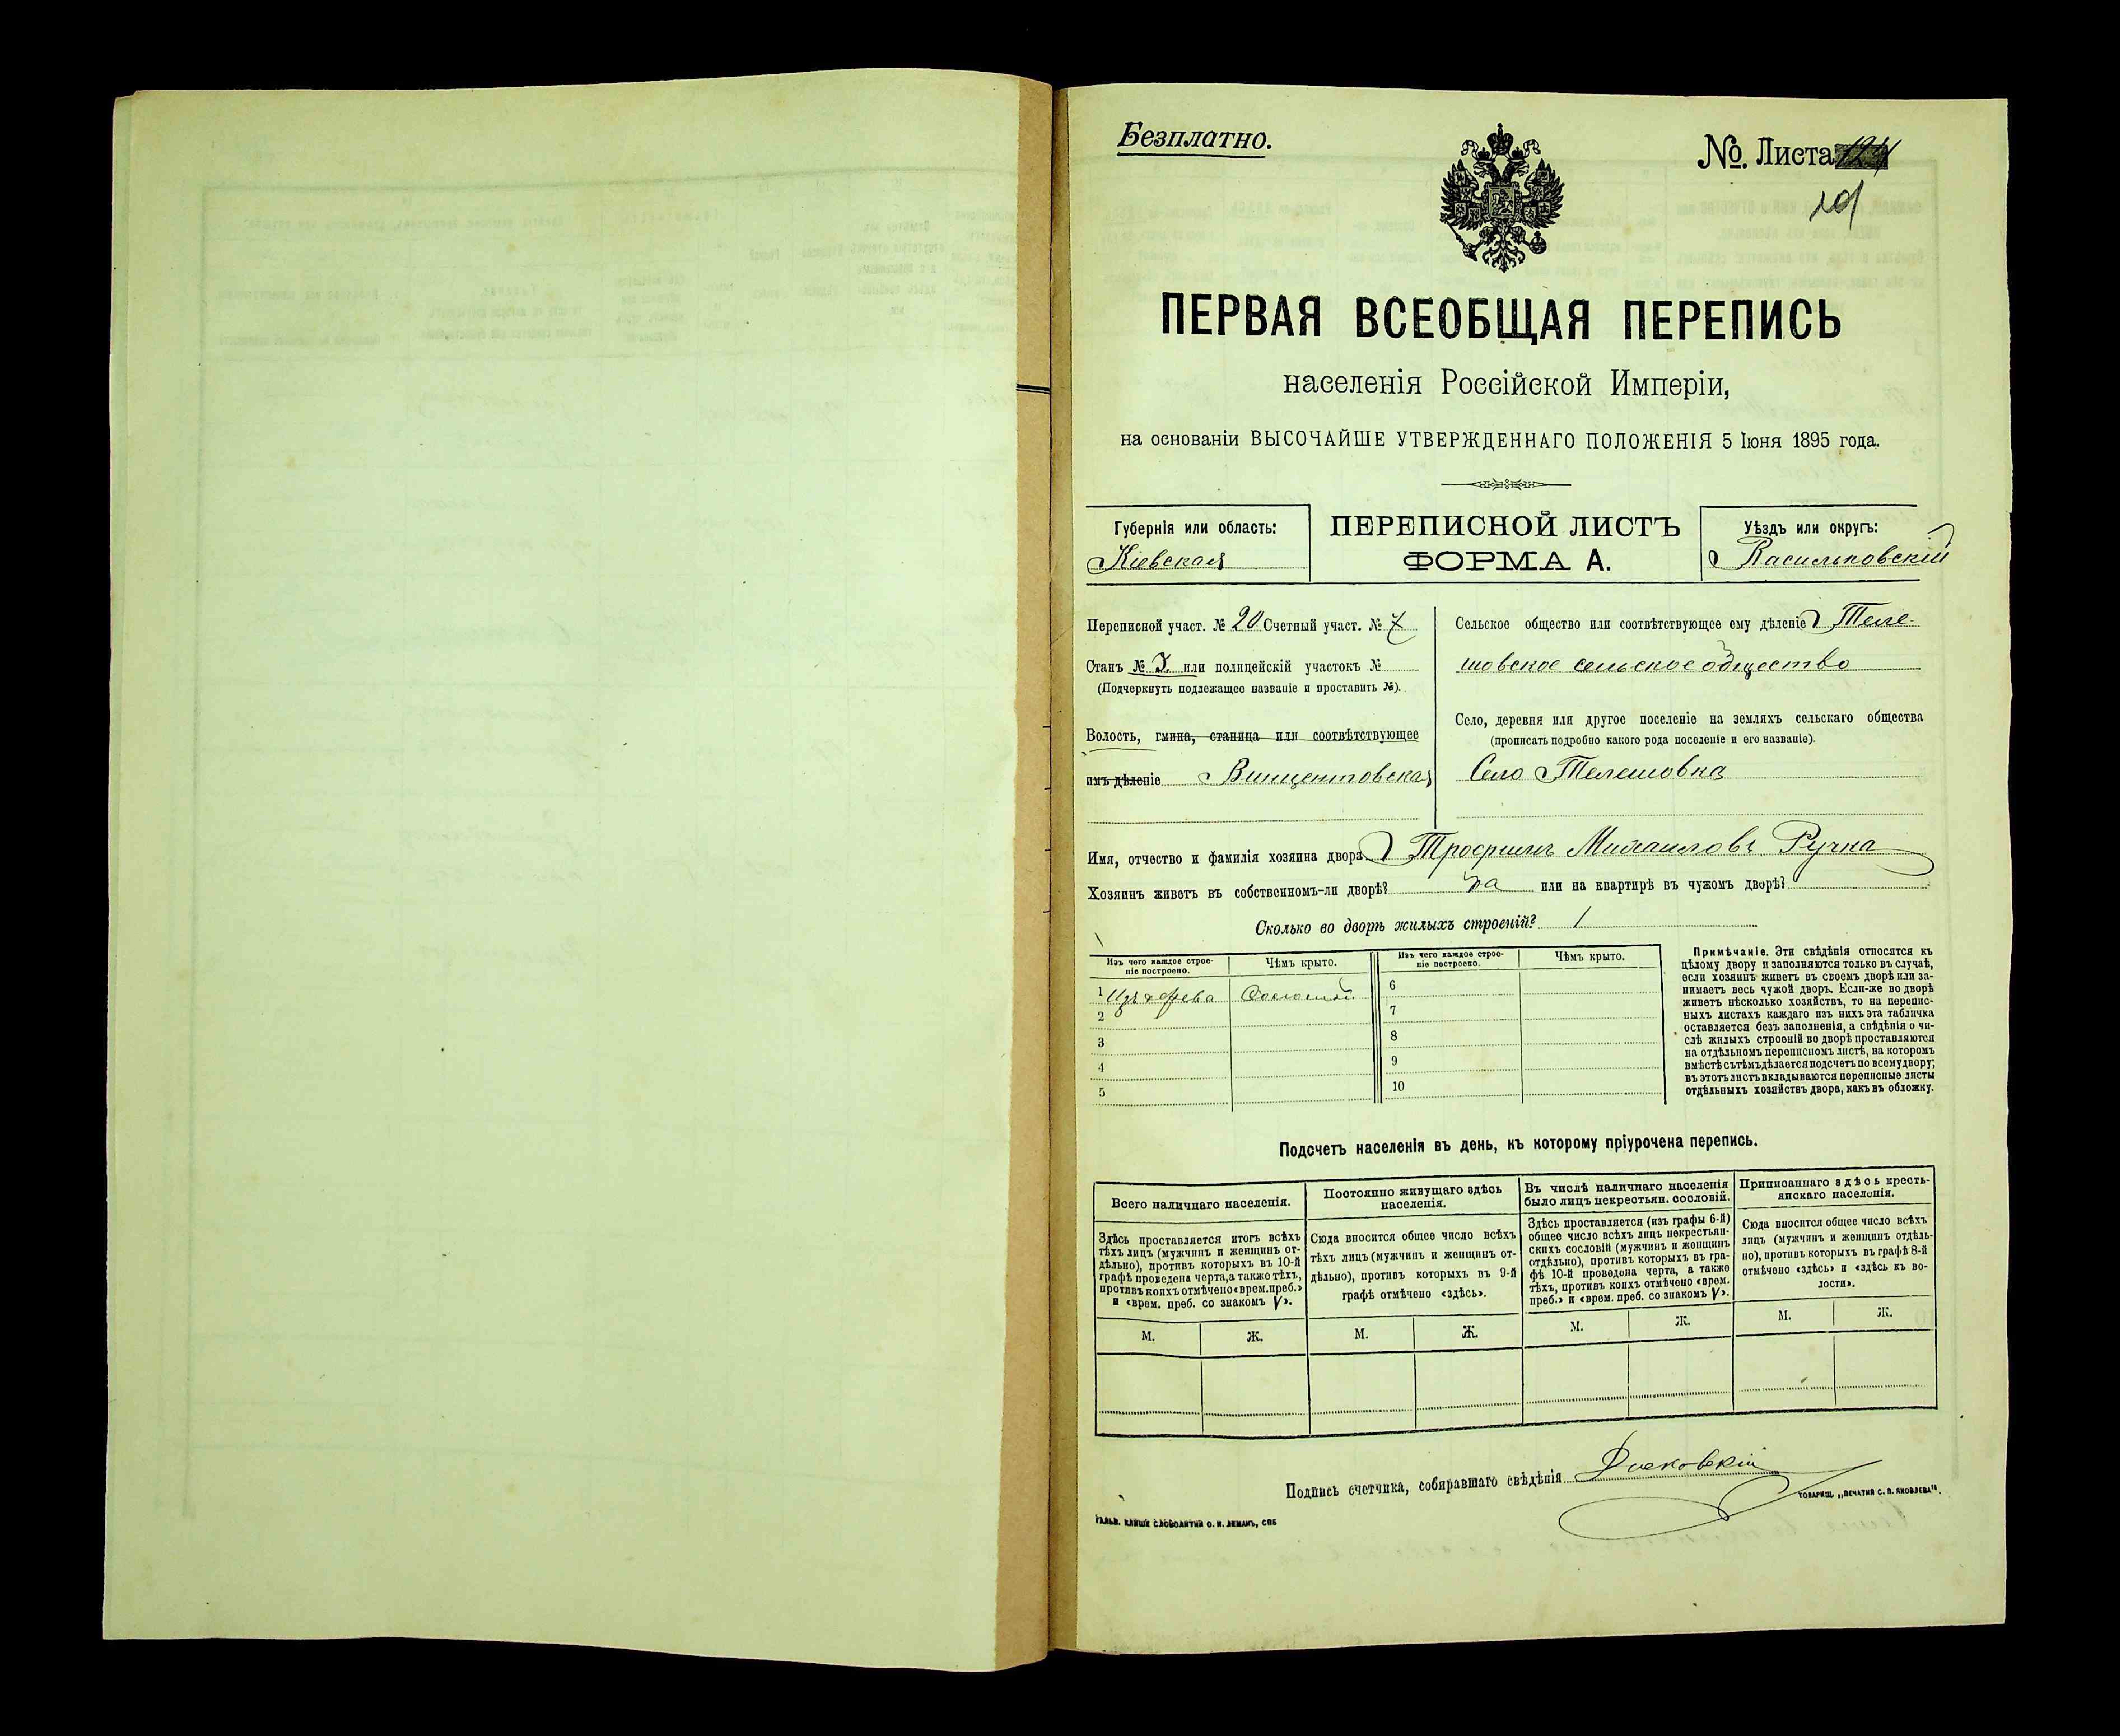 Безплатно.
№. Листа
101
ПЕРВАЯ ВСЕОБЩАЯ ПЕРЕПИСЬ
населенія Россійской Имперіи,
на основаніи ВЫСОЧАЙШЕ УТВЕРЖДЕННАГО ПОЛОЖЕНІЯ 5 Іюня 1895 года.
Губернія или область:
Кіевская
ПЕРЕПИСНОЙ ЛИСТЪ
ФОРМА А.
Уѣздъ или округъ:
Васильковскій
Переписной участ. № 20 Счетный участ. № 7
Станъ № I или полицейскій участокъ №
(Подчеркнуть подлежащее названіе и проставить №).
Волость, гмина, станица или соотвѣтствующее
имъ дѣленіе Винцентовская
Сельское общество или соотвѣтствующее ему дѣленіе Теле-
шовское сельское общество
Село, деревня или другое поселеніе на земляхъ сельскаго общества
(прописать подробно какого рода поселеніе и его названіе).
Село Телешовка
Имя, отчество и фамилія хозяина двора Трофимъ Михаиловъ Ручка
Хозяинъ живетъ въ собственномъ-ли дворѣ? да или на квартирѣ въ чужомъ дворѣ?
Сколько во дворѣ жилыхъ строеній? 1
Изъ чего каждое строе-
ніе построено.
Чѣмъ крыто.
Изъ чего каждое строе-
ніе построено.
Чѣмъ крыто.
1 Изъ дерева Соломой
2
3
4
5
6
7
8
9
10
Примѣчаніе. Эти свѣдѣнія относятся къ
цѣлому двору и заполняются только въ случаѣ,
если хозяинъ живетъ въ своемъ дворѣ или за-
нимаетъ весь чужой дворъ. Если-же во дворѣ
живетъ нѣсколько хозяйствъ, то на перепис-
ныхъ листахъ каждаго изъ нихъ эта табличка
оставляется безъ заполненія, а свѣдѣнія о чи-
слѣ жилыхъ строеній во дворѣ проставляются
на отдѣльномъ переписномъ листѣ, на которомъ
вмѣстѣ съ тѣмъ дѣлается подсчетъ по всему двору;
въ этотъ листъ вкладываются переписные листы
отдѣльныхъ хозяйствъ двора, какъ въ обложку.
Подсчетъ населенія въ день, къ которому пріурочена перепись.
Всего наличнаго населенія.
Здѣсь проставляется итогъ всѣхъ
тѣхъ лицъ (мужчинъ и женщинъ от-
дѣльно), противъ которыхъ въ 10-й
графѣ проведена черта, а также тѣхъ,
противъ коихъ отмѣчено «врем. преб.»
и «врем. преб. со знакомъ V».
М. Ж.
Постоянно живущаго здѣсь
населенія.
Сюда вносится общее число всѣхъ
тѣхъ лицъ (мужчинъ и женщинъ от-
дѣльно), противъ которыхъ въ 9-й
графѣ отмѣчено «здѣсь».
М. Ж.
Въ числѣ наличнаго населенія
было лицъ некрестьян. сословій.
Здѣсь проставляется (изъ графы 6-й)
общее число всѣхъ лицъ некрестьян-
скихъ сословій (мужчинъ и женщинъ
отдѣльно), противъ которыхъ въ гра-
фѣ 10-й проведена черта, а также
тѣхъ, противъ коихъ отмѣчено «врем.
преб.» и «врем. преб. со знакомъ V».
М. Ж.
Приписаннаго здѣсь кресть-
янскаго населенія.
Сюда вносится общее число всѣхъ
лицъ (мужчинъ и женщинъ отдѣль-
но), противъ которыхъ въ графѣ 8-й
отмѣчено «здѣсь» и «здѣсь къ во-
лости».
М. Ж.
Подпись счетчика, собиравшаго свѣдѣнія
ТОВАРИЩ. „ПЕЧАТНЯ С. П. ЯКОВЛЕВА".
ГАЛЬВ. КЛИШЕ СЛОВОЛИТНИ О. И. ЛЕМАНЪ, СПБ